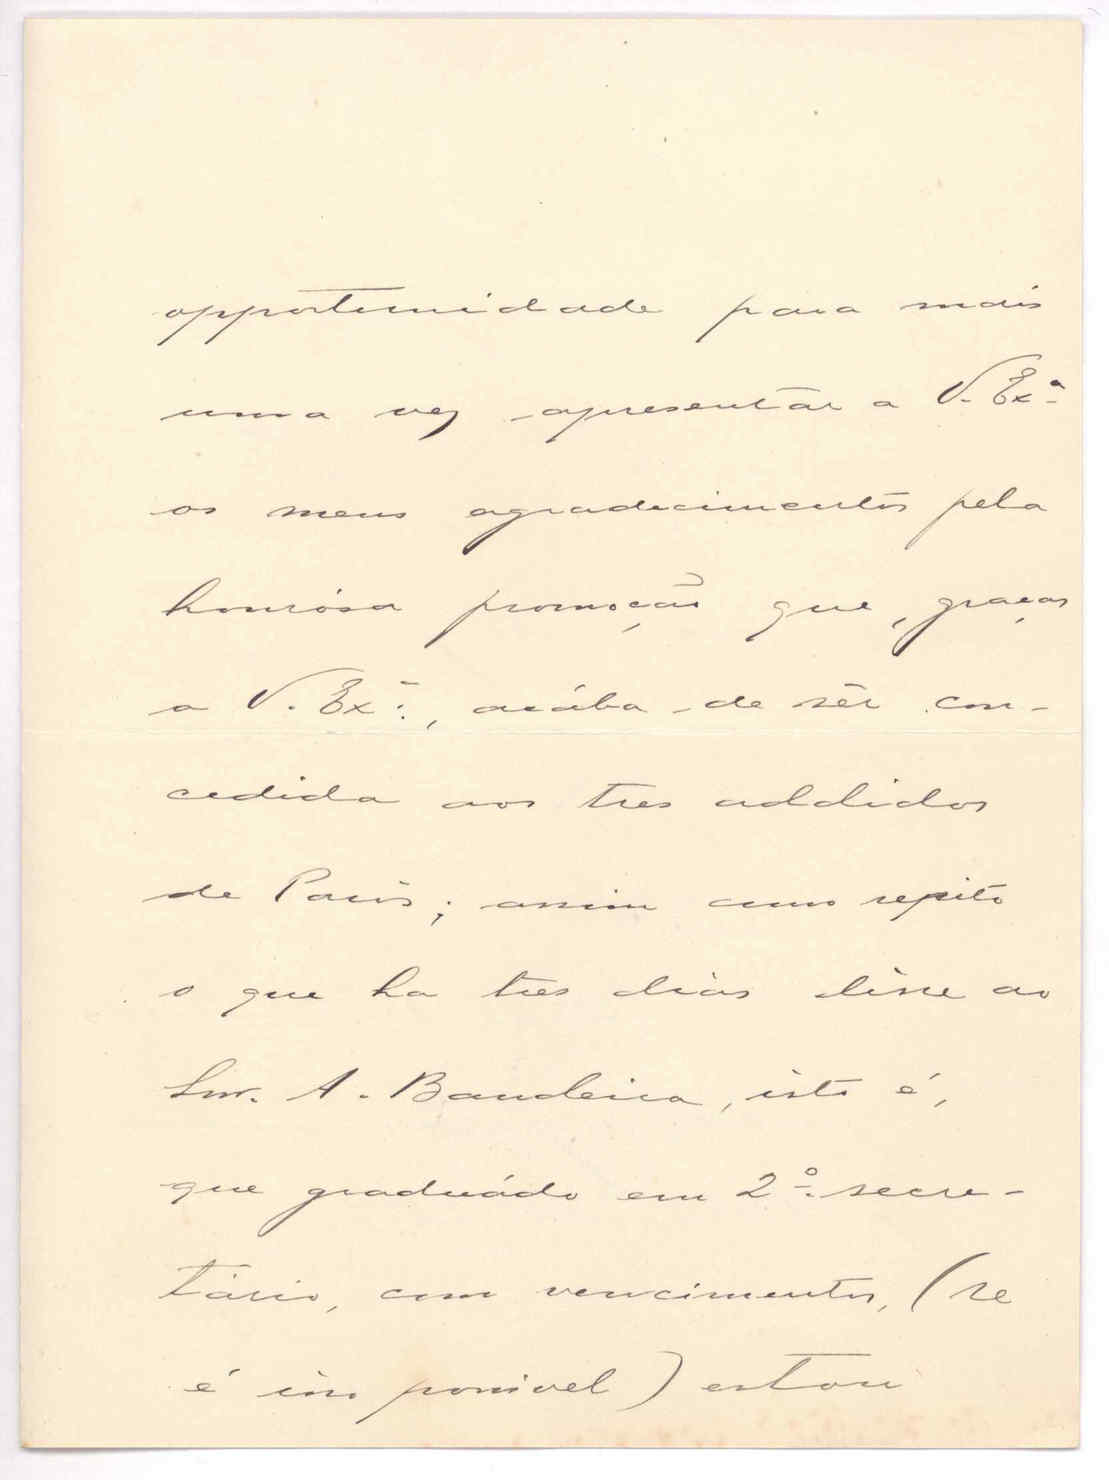 opportunidade para mais
uma vez apresentar a V. Exª
os meus agradecimentos pela
honrósa promoção que, graças
a V. Exª., acába de sêr con-
cedida aos tres addidos
de Paris; assim como repito
o que ha tres dias disse ao
Snr. A. Bandeira, isto é,
que graduádo em 2º. secre-
tário, com vencimentos, (se
é isso possivel) estou